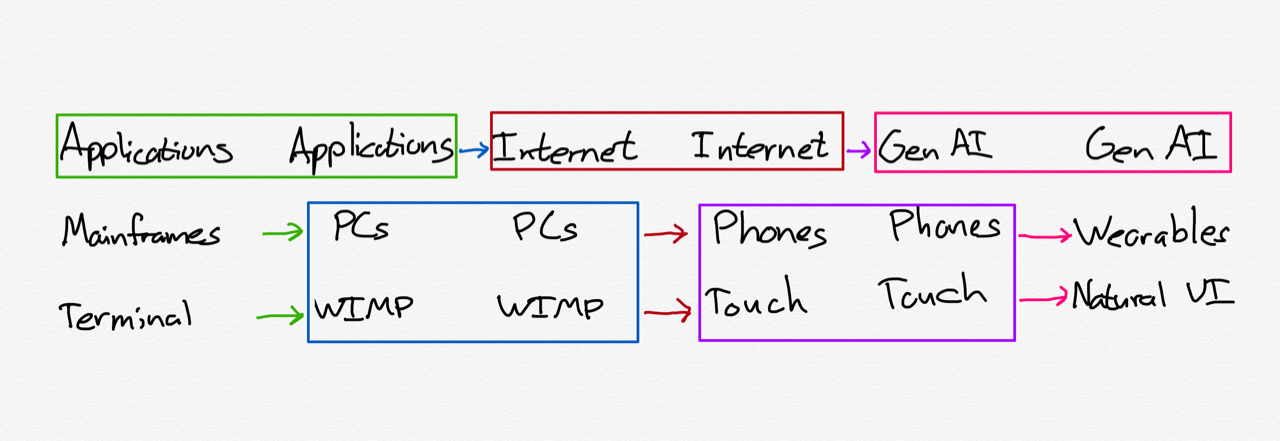 Applications Applications → Internet Internet → Gen AI Gen AI
Mainframes → PCs PCs → Phones Phones → Wearables
Terminal → WIMP WIMP → Touch Touch → Natural UI